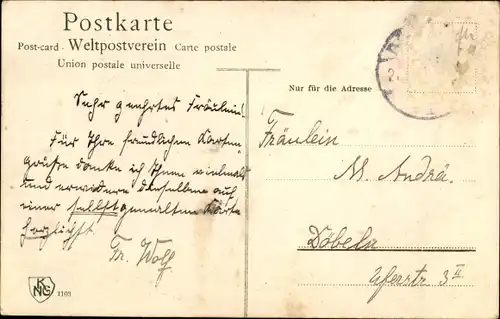 Postkarte
Post-card - Weltpostverein Carte postale
Union postale universelle
Nur für die Adresse
Sehr geehrtes Fräulein!
Für Ihre freundlichen Karten-
grüße danke ich Ihnen vielmals
und erwidere dieselben auf
einer selbstgemalten Karte
herzlichst.
Fr. Wolf
Fräulein
M. Andrä.
Döbeln
Uferstr 3 II
KNG
1103